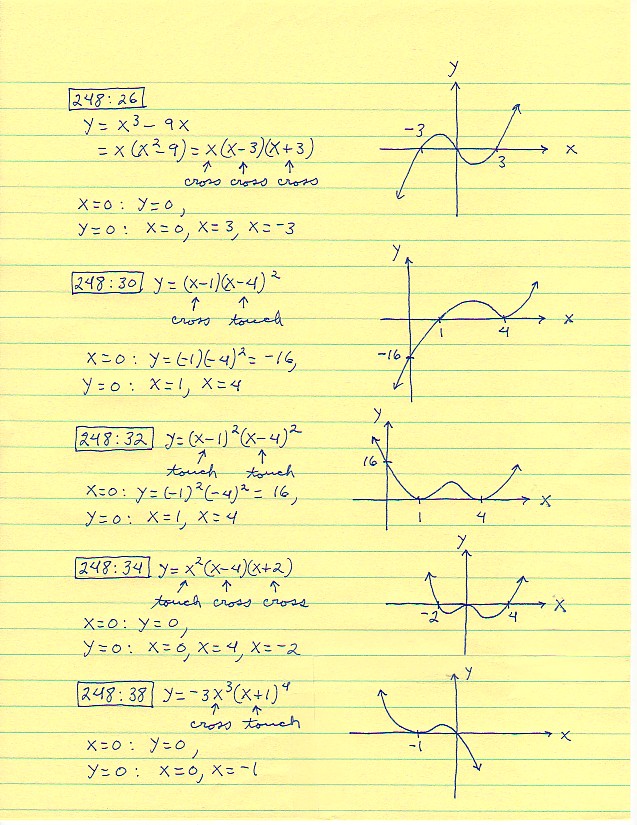 248:26
y = x³ − 9x
= x(x²−9) = x(x−3)(x+3)
↑ ↑ ↑
cross cross cross
x=0: y=0,
y=0: x=0, x=3, x=−3
y
−3
3
x
248:30 y = (x−1)(x−4)²
↑ ↑
cross touch
x=0: y=(−1)(−4)² = −16,
y=0: x=1, x=4
y
x
1
4
−16
248:32 y = (x−1)²(x−4)²
↑ ↑
touch touch
x=0: y=(−1)²(−4)² = 16,
y=0: x=1, x=4
y
16
x
1
4
248:34 y = x²(x−4)(x+2)
↑ ↑ ↑
touch cross cross
x=0: y=0,
y=0: x=0, x=4, x=−2
y
−2
4
x
248:38 y = −3x³(x+1)⁴
↑ ↑
cross touch
x=0: y=0,
y=0: x=0, x=−1
y
−1
x